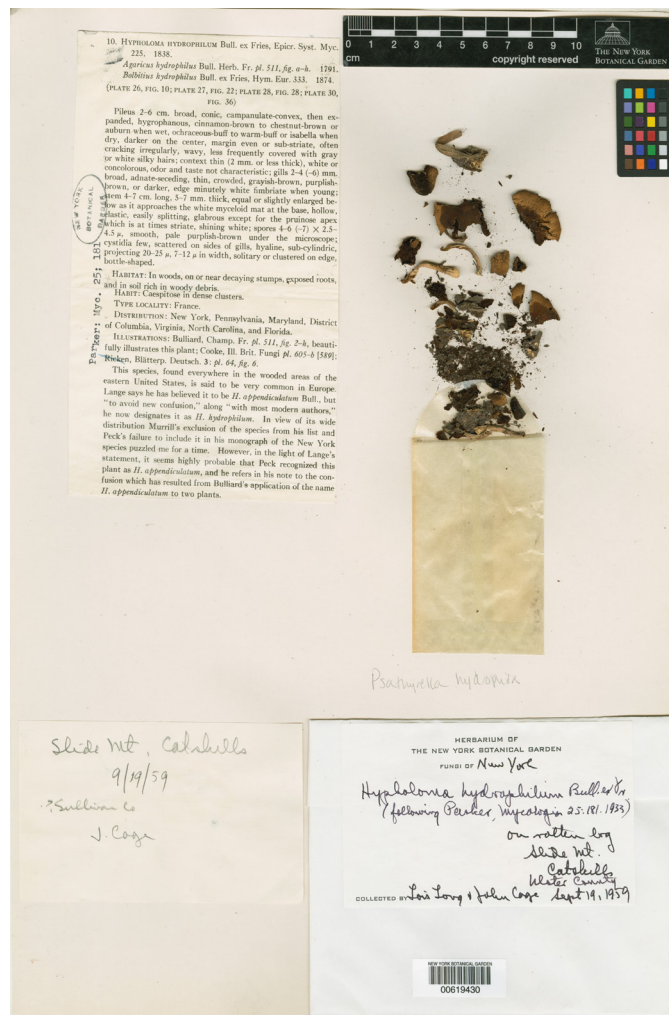 10. HYPHOLOMA HYDROPHILUM Bull. ex Fries, Epicr. Syst. Myc.
225. 1838.
Agaricus hydrophilus Bull. Herb. Fr. pl. 511, fig. a-h. 1791.
Bolbitius hydrophilus Bull. ex Fries, Hym. Eur. 333. 1874.
(PLATE 26, FIG. 10; PLATE 27, FIG. 22; PLATE 28, FIG. 28; PLATE 30,
FIG. 36)
Pileus 2-6 cm. broad, conic, campanulate-convex, then ex-
panded, hygrophanous, cinnamon-brown to chestnut-brown or
auburn when wet, ochraceous-buff to warm-buff or isabella when
dry, darker on the center, margin even or sub-striate, often
cracking irregularly, wavy, less frequently covered with gray
or white silky hairs; context thin (2 mm. or less thick), white or
concolorous, odor and taste not characteristic; gills 2-4 (-6) mm.
broad, adnate-seceding, thin, crowded, grayish-brown, purplish-
brown, or darker, edge minutely white fimbriate when young;
stem 4-7 cm. long, 5-7 mm. thick, equal or slightly enlarged be-
low as it approaches the white myceloid mat at the base, hollow,
elastic, easily splitting, glabrous except for the pruinose apex
which is at times striate, shining white; spores 4-6 (-7) × 2.5-
4.5 μ, smooth, pale purplish-brown under the microscope;
cystidia few, scattered on sides of gills, hyaline, sub-cylindric,
projecting 20-25 μ, 7-12 μ in width, solitary or clustered on edge,
bottle-shaped.
HABITAT: In woods, on or near decaying stumps, exposed roots,
and in soil rich in woody debris.
HABIT: Caespitose in dense clusters.
TYPE LOCALITY: France.
DISTRIBUTION: New York, Pennsylvania, Maryland, District
of Columbia, Virginia, North Carolina, and Florida.
ILLUSTRATIONS: Bulliard, Champ. Fr. pl. 511, fig. 2-h, beauti-
fully illustrates this plant; Cooke, Ill. Brit. Fungi pl. 605-b [589];
Ricken, Blätterp. Deutsch. 3: pl. 64, fig. 6.
This species, found everywhere in the wooded areas of the
eastern United States, is said to be very common in Europe.
Lange says he has believed it to be H. appendiculatum Bull., but
"to avoid new confusion," along "with most modern authors,"
he now designates it as H. hydrophilum. In view of its wide
distribution Murrill's exclusion of the species from his list and
Peck's failure to include it in his monograph of the New York
species puzzled me for a time. However, in the light of Lange's
statement, it seems highly probable that Peck recognized this
plant as H. appendiculatum, and he refers in his note to the con-
fusion which has resulted from Bulliard's application of the name
H. appendiculatum to two plants.
NEW YORK
BOTANICAL
GARDEN
Parker: Myc. 25; 181
0 1 2 3 4 5 6 7 8 9 10
cm
copyright reserved
THE NEW YORK
BOTANICAL GARDEN
Psathyrella hydrophila
Slide Mt, Catskills
9/19/59
? Sullivan Co
J. Cage
HERBARIUM OF
THE NEW YORK BOTANICAL GARDEN
FUNGI OF New York
Hypholoma hydrophilum Bull. ex Fr
(following Parker, Mycologia 25:181.1933)
on rotten log
Slide Mt.
Catskills
Ulster County
COLLECTED BY Lois Long & John Cage Sept 19, 1959
NEW YORK BOTANICAL GARDEN
00619430